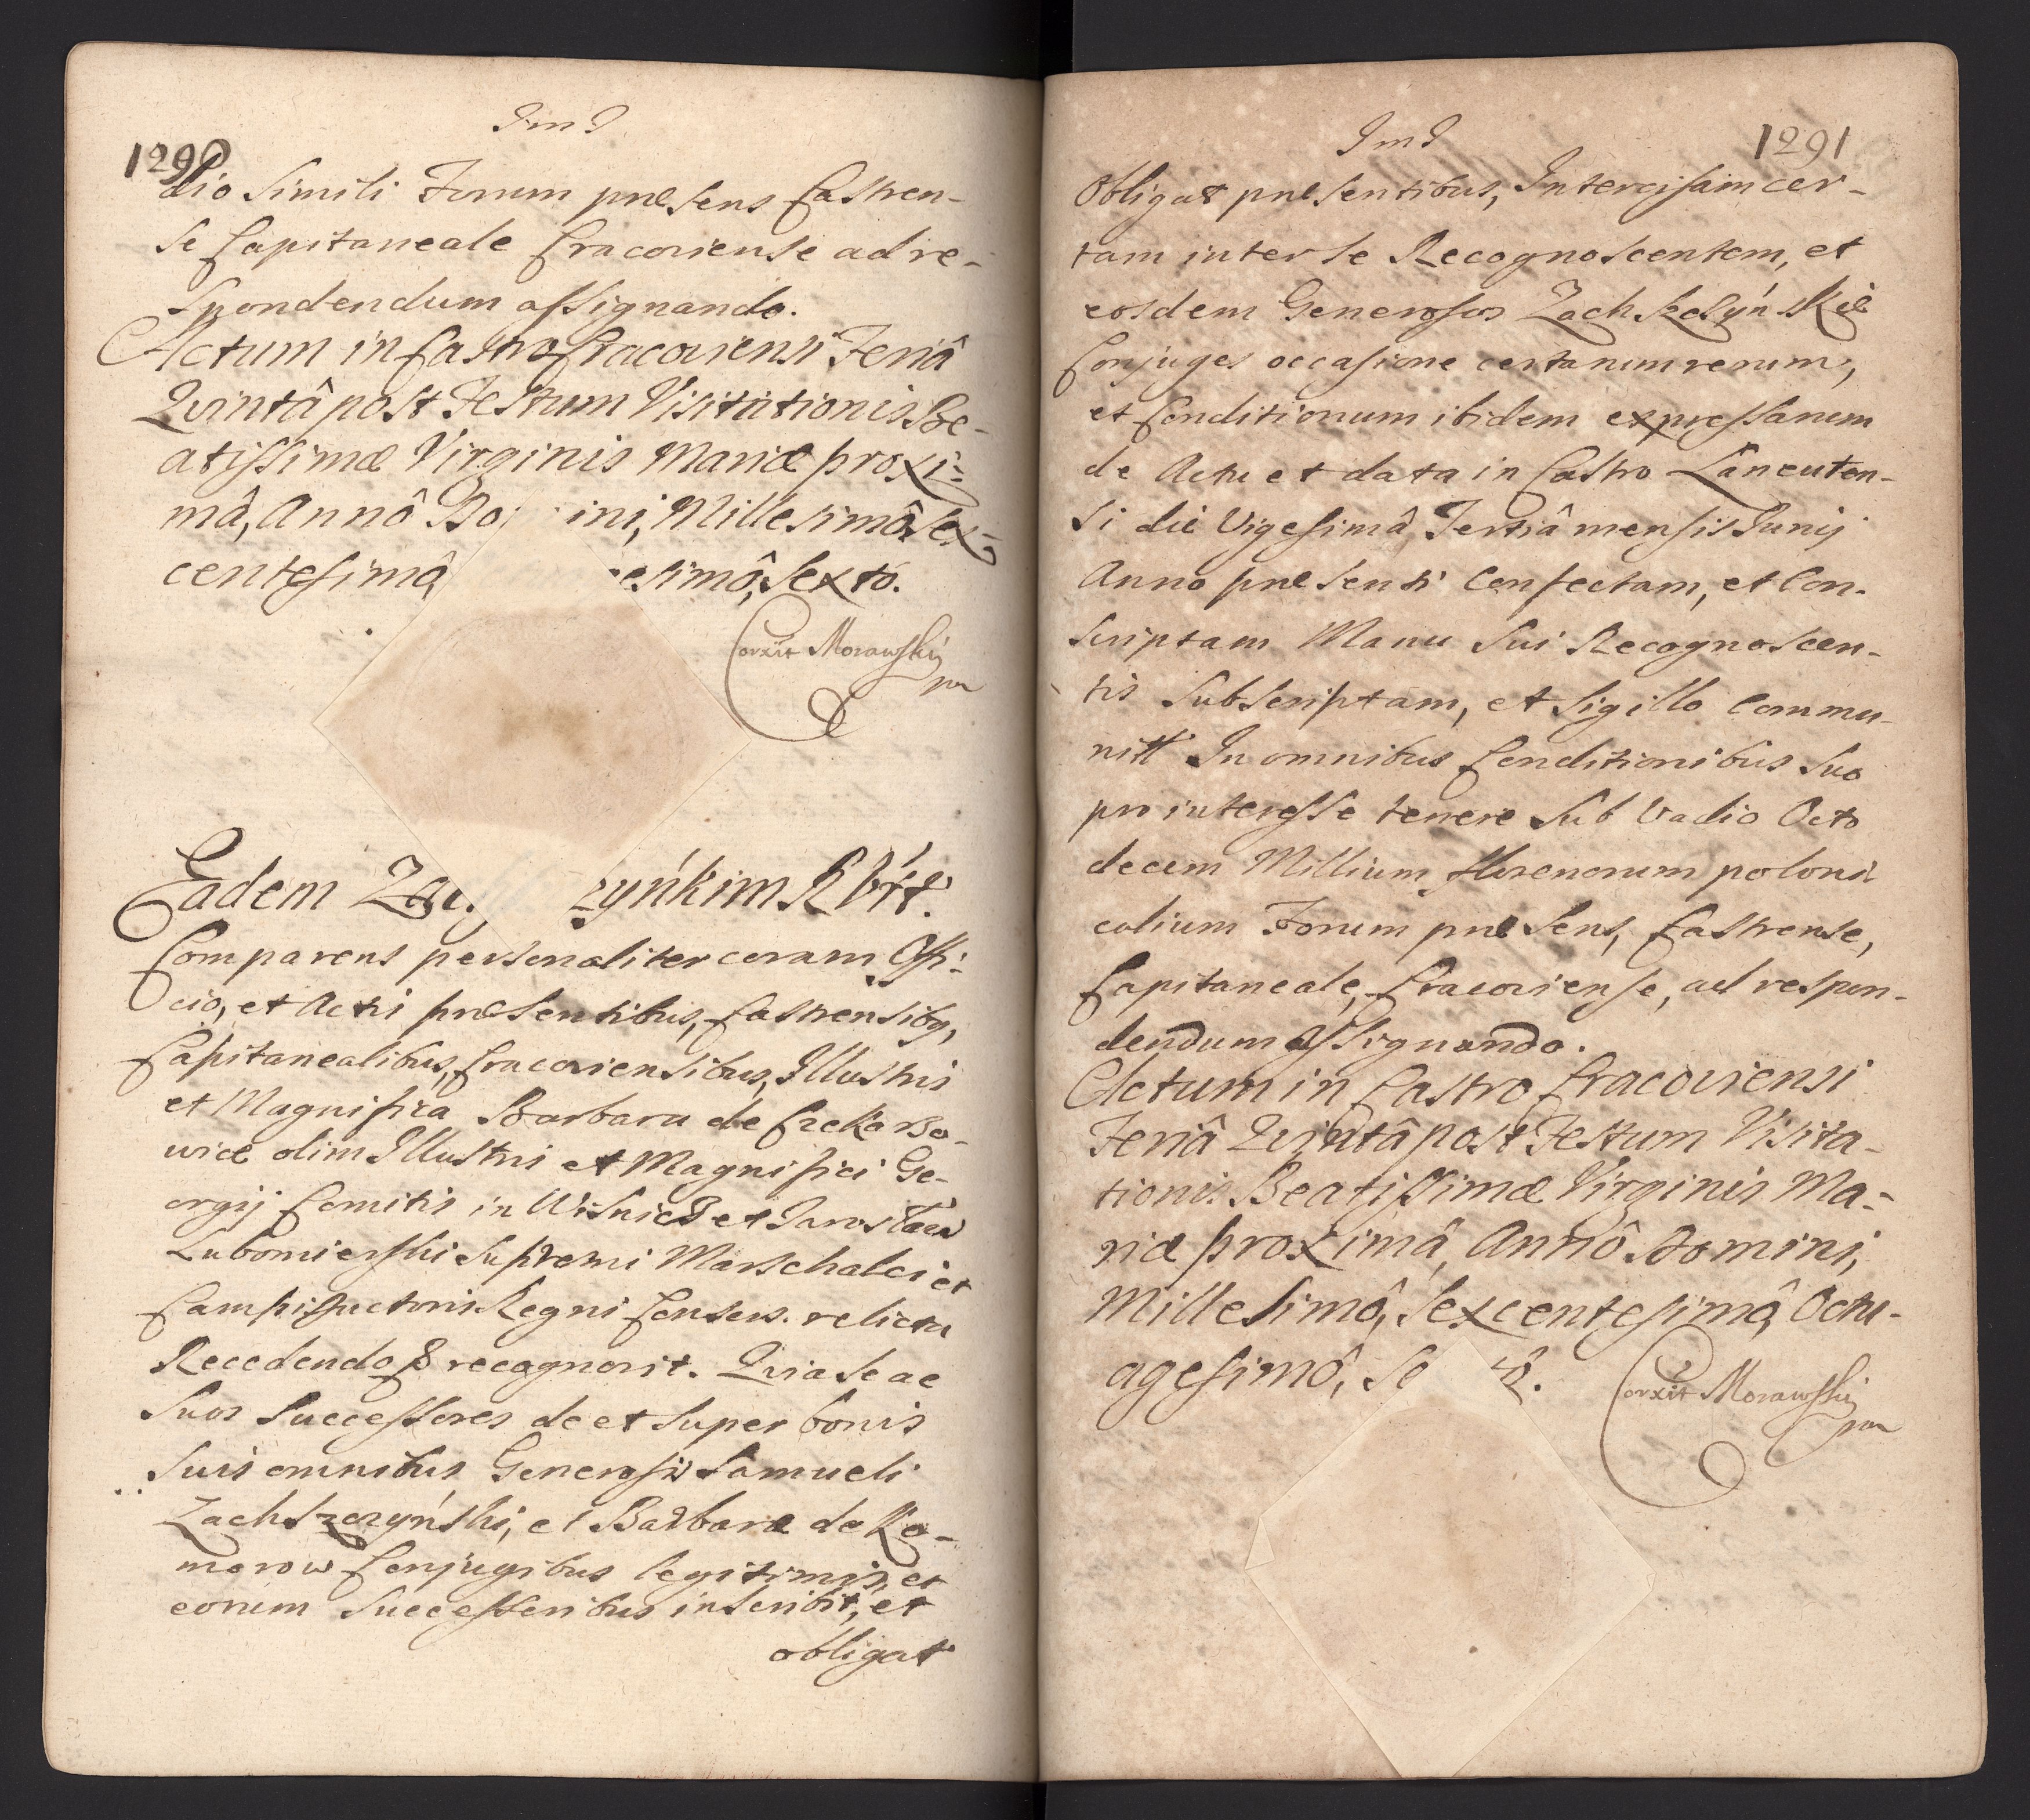 1290
dio Simili Forum præsens Castren-
se Capitaneale Cracoviense ad re-
spondendum assignando.
Actum in Castro Cracoviensi Feriâ
Qvintâ post Festum Visitationis Be-
atissimæ Virginis Mariæ proxi-
mâ, Annô Do ini, Millesimô Sex-
centesimô esimô, Sexto.
Corxit Morawskij
Eadem zyńkim R
Comparens personaliter coram Offi-
cio, et Actis præsentibus, Castrensibq,
Capitanealibus, Cracoviensibus, Illustris
et Magnifica Barbara de
wice olim Illustris et Magnifici Ge-
orgij Comitis in Wisnicz et Jaroslaw
Lubomierski Supremi Marschalci et
Campi Ductoris Regni Consors. relicta
Recedendo & recognovit. Qvia Se ac
Suos Successores de et Super bonis
Suis omnibus Generosis Samueli
Zachszczyński, et Barbaræ de Ko-
morow Conjugibus legitimis, et
eorum Successoribus inscribit, et
obligat
1291
Obligat præsentibus, Intercisam cer-
tam inter Se Recognoscentem, et
eosdem Generosos
Conjuges occasione certarum rerum,
et Conditionum ibidem expressarum
de Actu et data in Castro Lancuten-
si die Vigesimâ, Tertiâ mensis Junij
Anno præsenti Confectam, et Con-
scriptam Manu Sui Recognoscen-
tis Subscriptam, et Sigillo Commu-
nitt In omnibus Conditionibus Suo
pro interesse tenere Sub Vadio Octo
decem Millium florenorum poloni
calium Forum præsens, Castrense,
Capitaneale, Cracoviense, ad respon-
dendum assignando.
Actum in Castro Cracoviensi
Feriâ Qvintâ post Festum Visita-
tionis Beatissimæ Virginis Ma-
riæ proximâ, Annô Domini,
Millesimô, Sexcentesimô, Octu-
agesimô,
Corxit Morawskij